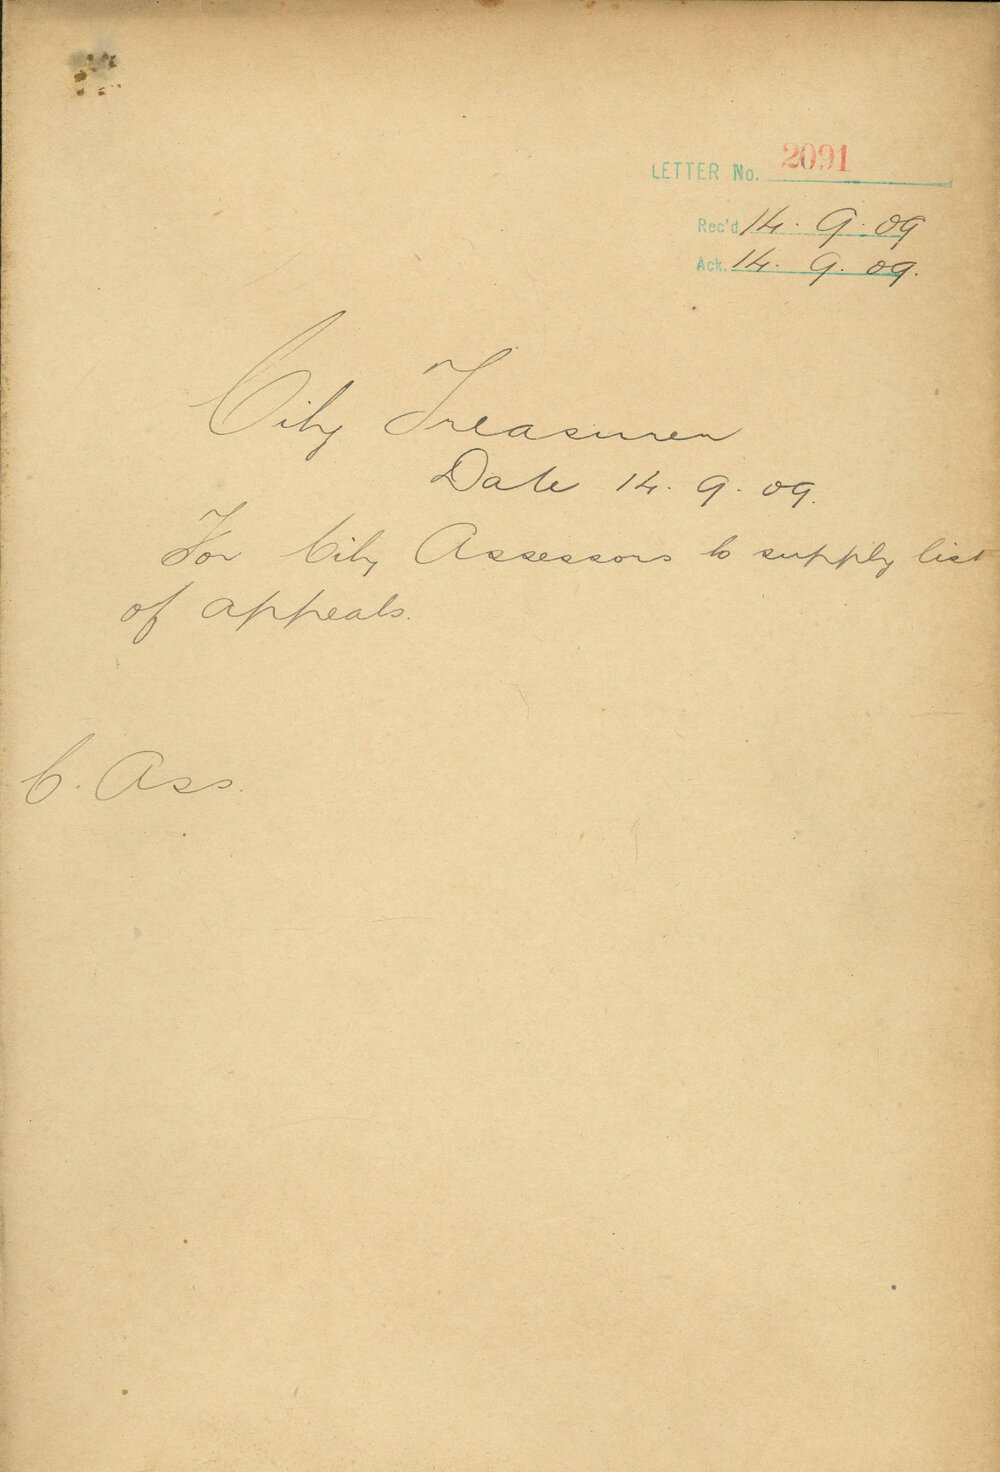 LETTER No. 2091
Rec'd 14. 9. 09
Ack. 14. 9. 09.
City Treasurer
Date 14. 9. 09.
For City Assessors to supply list
of appeals.
C. Ass.